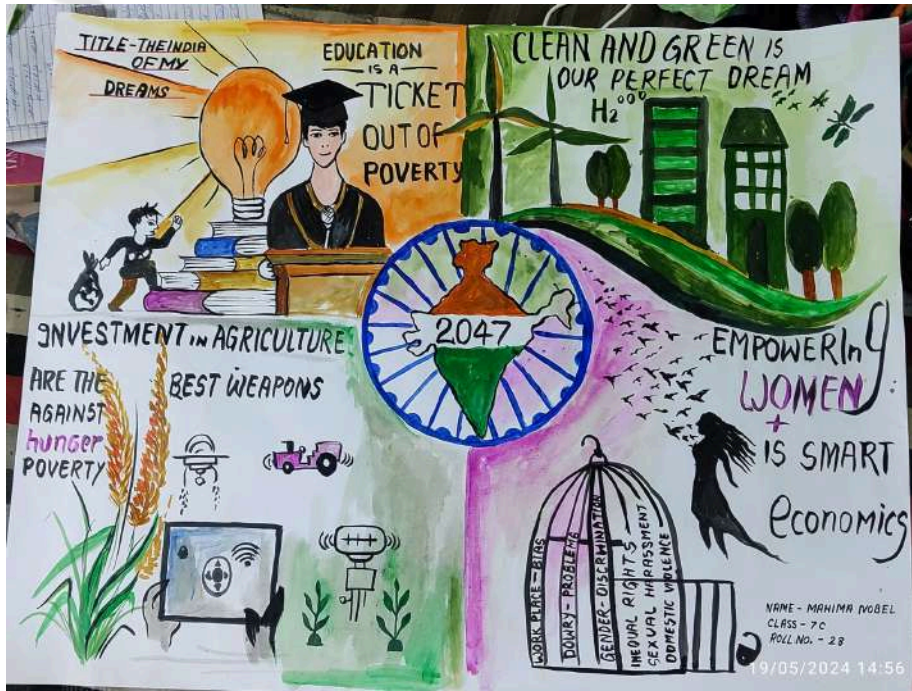 TITLE-THEINDIA
OF MY
DREAMS
EDUCATION
IS A
TICKET
OUT OF
POVERTY
CLEAN AND GREEN IS
OUR PERFECT DREAM
H2
2047
INVESTMENT IN AGRICULTURE
ARE THE BEST WEAPONS
AGAINST
hunger
POVERTY
EMPOWERIng
WOMEN
+
IS SMART
economics
WORK PLACE-BIAS
DOWRY-PROBLEMS
GENDER-DISCRIMINATION
INEQUAL RIGHTS
SEXUAL HARASSMENT
DOMESTIC VIOLENCE
NAME- MAHIMA NOBEL
CLASS-7C
ROLL NO.-28
19/05/2024 14:56